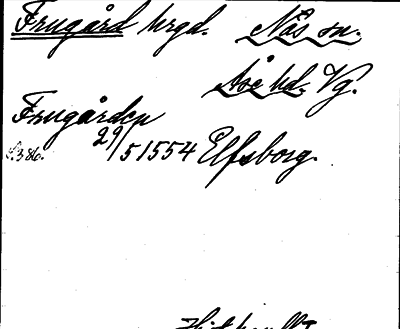 Frugård hrgd. Näs sn.
Åse hd. Vg.
Frugården
29/5 1554 Elfsborg.
S. 386.